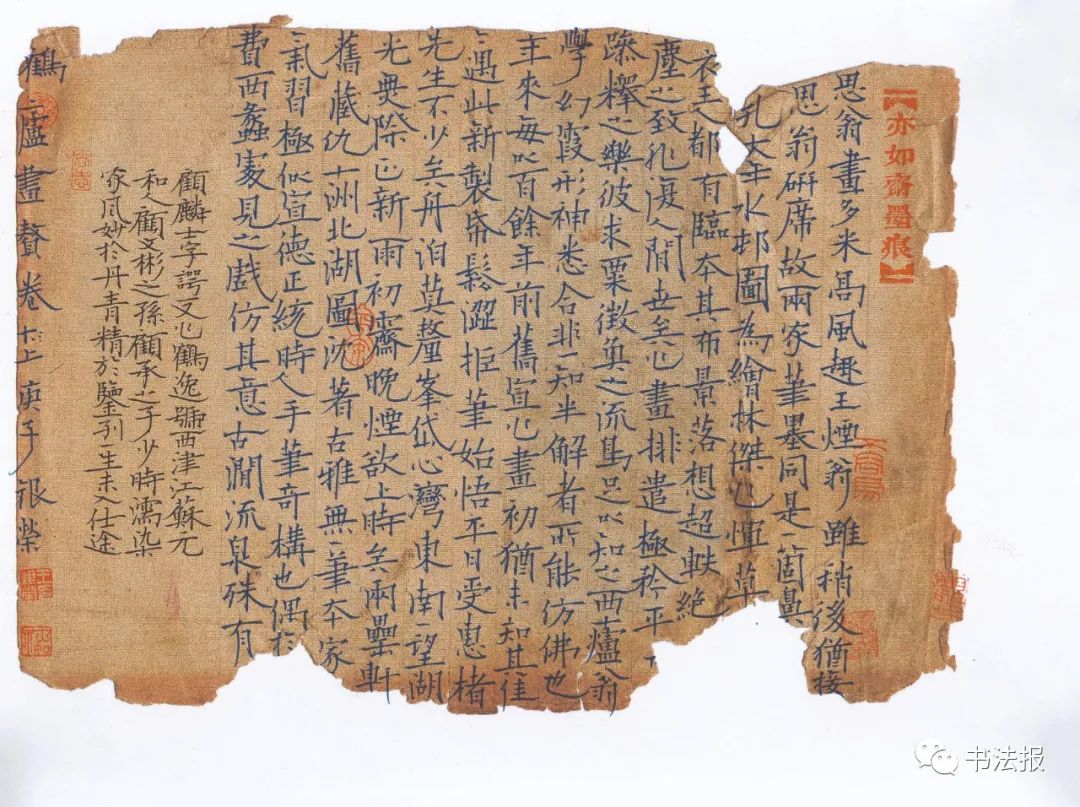 【亦如齋墨痕】
思翁畫多米髙風趣王煙翁雖稍後猶接
思翁研席故兩家筆墨同是一箇鼻
孔大年水邨圖為繪林傑作惲草
衣王都有臨夲其布景落想超軼絶
塵之致孔人間世矣作畫排遣極矜平
躁釋之樂彼求粟徵之流烏足以知之西爐翁
學幻霞形神悉合非一知半解者所能仿佛也
年來每以百餘年前舊宣作畫初猶未知其佳
遇此新製帋鬆澀拒筆始悟平日受惠楮
先生不少矣舟泊莫釐峯岱心灣東南一望湖
光無際正新雨初霽晚煙欲上時矣兩罍軒
舊藏仇十洲北湖圖沈著古雅無一筆夲家
氣習極似宣德正統時人手筆奇構也偶於
費西蠡處見之戲仿其意古澗流泉殊有
顧麟士字諤又作鶴逸號西津江蘇元
和人顧文彬之孫顧承之子少時濡染
家風妙於丹青精於鑒別一生未入仕途
鶴廬畫贅卷上庚子銀榮
书法报